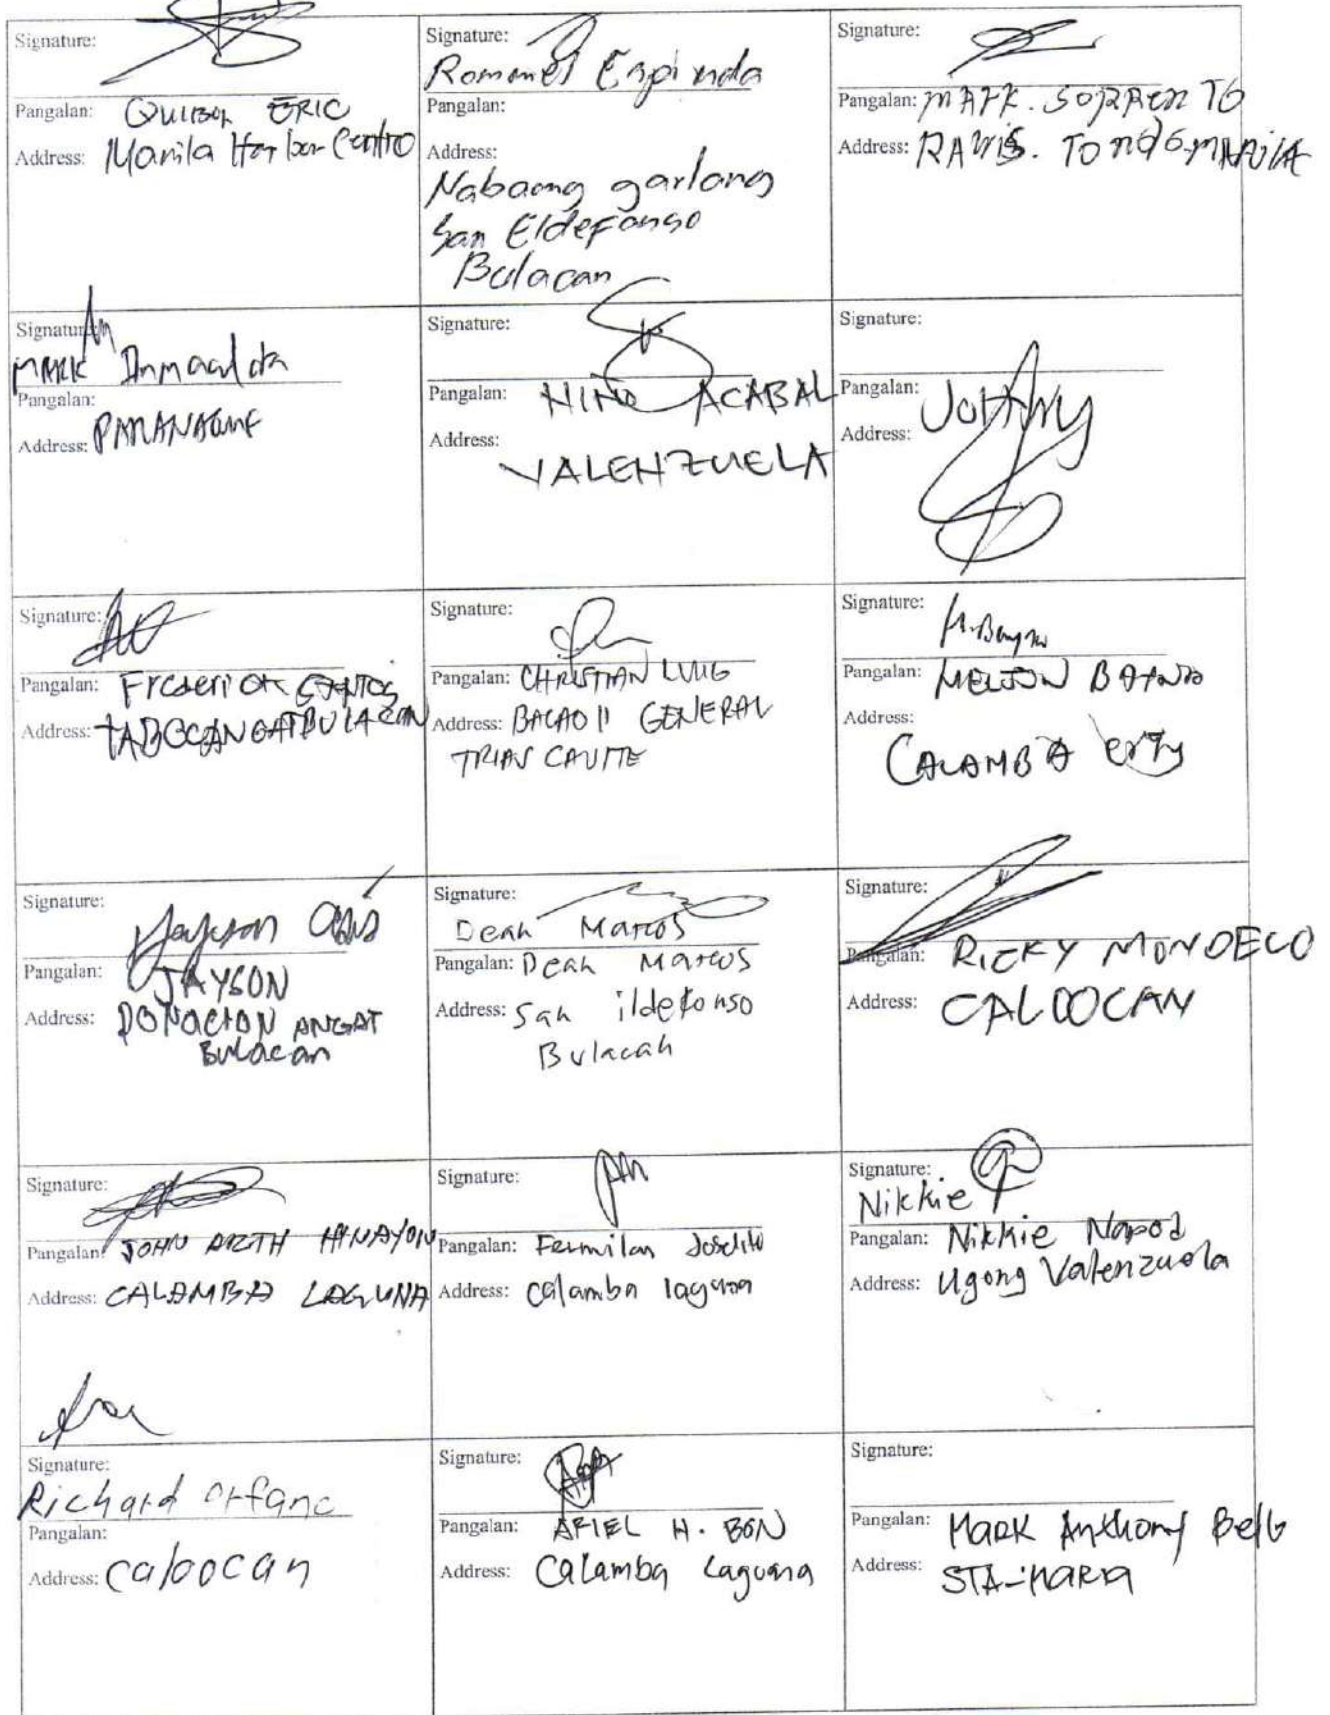 Signature:
Pangalan: Quibol ERIC
Address: Manila Harbor Centro
Signature:
Rommel Espinda
Pangalan:
Address:
Nabaong garlang
San Eldefonso
Bulacan
Signature:
Pangalan: MARK. SORREN TO
Address: RAVIS. TONDO-MANILA
Signature:
MARK Inmaculata
Pangalan:
Address: PARANAQUE
Signature:
Pangalan: NINO ACABAL
Address:
VALENZUELA
Signature:
Pangalan:
Address:
Signature:
Pangalan: Frederick SANTOS
Address: TABOC ANGAT BULACAN
Signature:
Pangalan: CHRISTIAN LUIG
Address: BACAO II GENERAL
TRIAS CAVITE
Signature:
Pangalan: MELJON BAYANO
Address:
CALAMBA CITY
Signature:
Pangalan: JAYSON
Address: DONACION ANGAT
Bulacan
Signature:
Dean Marcos
Pangalan: Dean Marcos
Address: San ildefonso
Bulacan
Signature:
Pangalan: RICKY MONDECO
Address: CALOOCAN
Signature:
Pangalan: JOHN ARITH HINAYON
Address: CALAMBA LAGUNA
Signature:
Pangalan: Fermilan Joselito
Address: Calamba laguna
Signature:
Nikkie
Pangalan: Nikkie Napod
Address: Ugong Valenzuela
Signature:
Richard Orfano
Pangalan:
Address: Caloocan
Signature:
Pangalan: ARIEL H. BON
Address: Calamba Laguana
Signature:
Pangalan: Mark Anthony Bello
Address: STA-MARIA